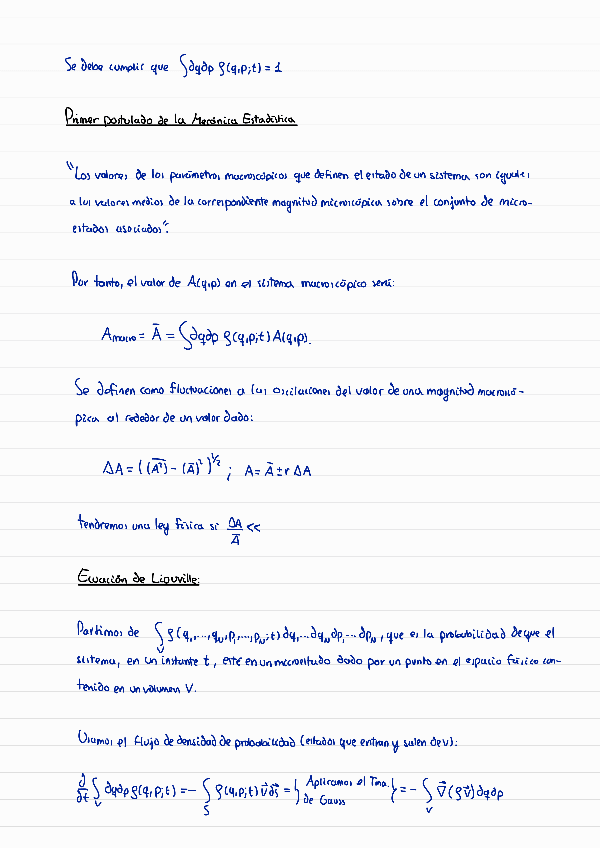 Se debe cumplir que ∫dqdp ρ(q,p;t) = 1
Primer postulado de la Mecánica Estadística
"Los valores de los parámetros macroscópicos que definen el estado de un sistema son iguales
a los valores medios de la correspondiente magnitud microscópica sobre el conjunto de micro-
estados asociados".
Por tanto, el valor de A(q,p) en el sistema macroscópico será:
A_macro = Ā = ∫dqdp ρ(q,p;t) A(q,p).
Se definen como fluctuaciones a las oscilaciones del valor de una magnitud macroscó-
pica al rededor de un valor dado:
ΔA = ( (A²)‾ - (Ā)² )^1/2 ; A = Ā ± r ΔA
tendremos una ley física si ΔA/Ā <<
Ecuación de Liouville:
Partimos de ∫_V ρ(q₁,...,q_N,p₁,...,p_N;t) dq₁...dq_N dp₁...dp_N, que es la probabilidad de que el
sistema, en un instante t, esté en un microestado dado por un punto en el espacio fásico con-
tenido en un volumen V.
Usamos el flujo de densidad de probabilidad (estados que entran y salen de V):
∂/∂t ∫_V dqdp ρ(q,p;t) = - ∫_S ρ(q,p;t) v⃗ ds⃗ = } Aplicamos el Tma. de Gauss } = - ∫_V ∇⃗(ρv⃗) dqdp